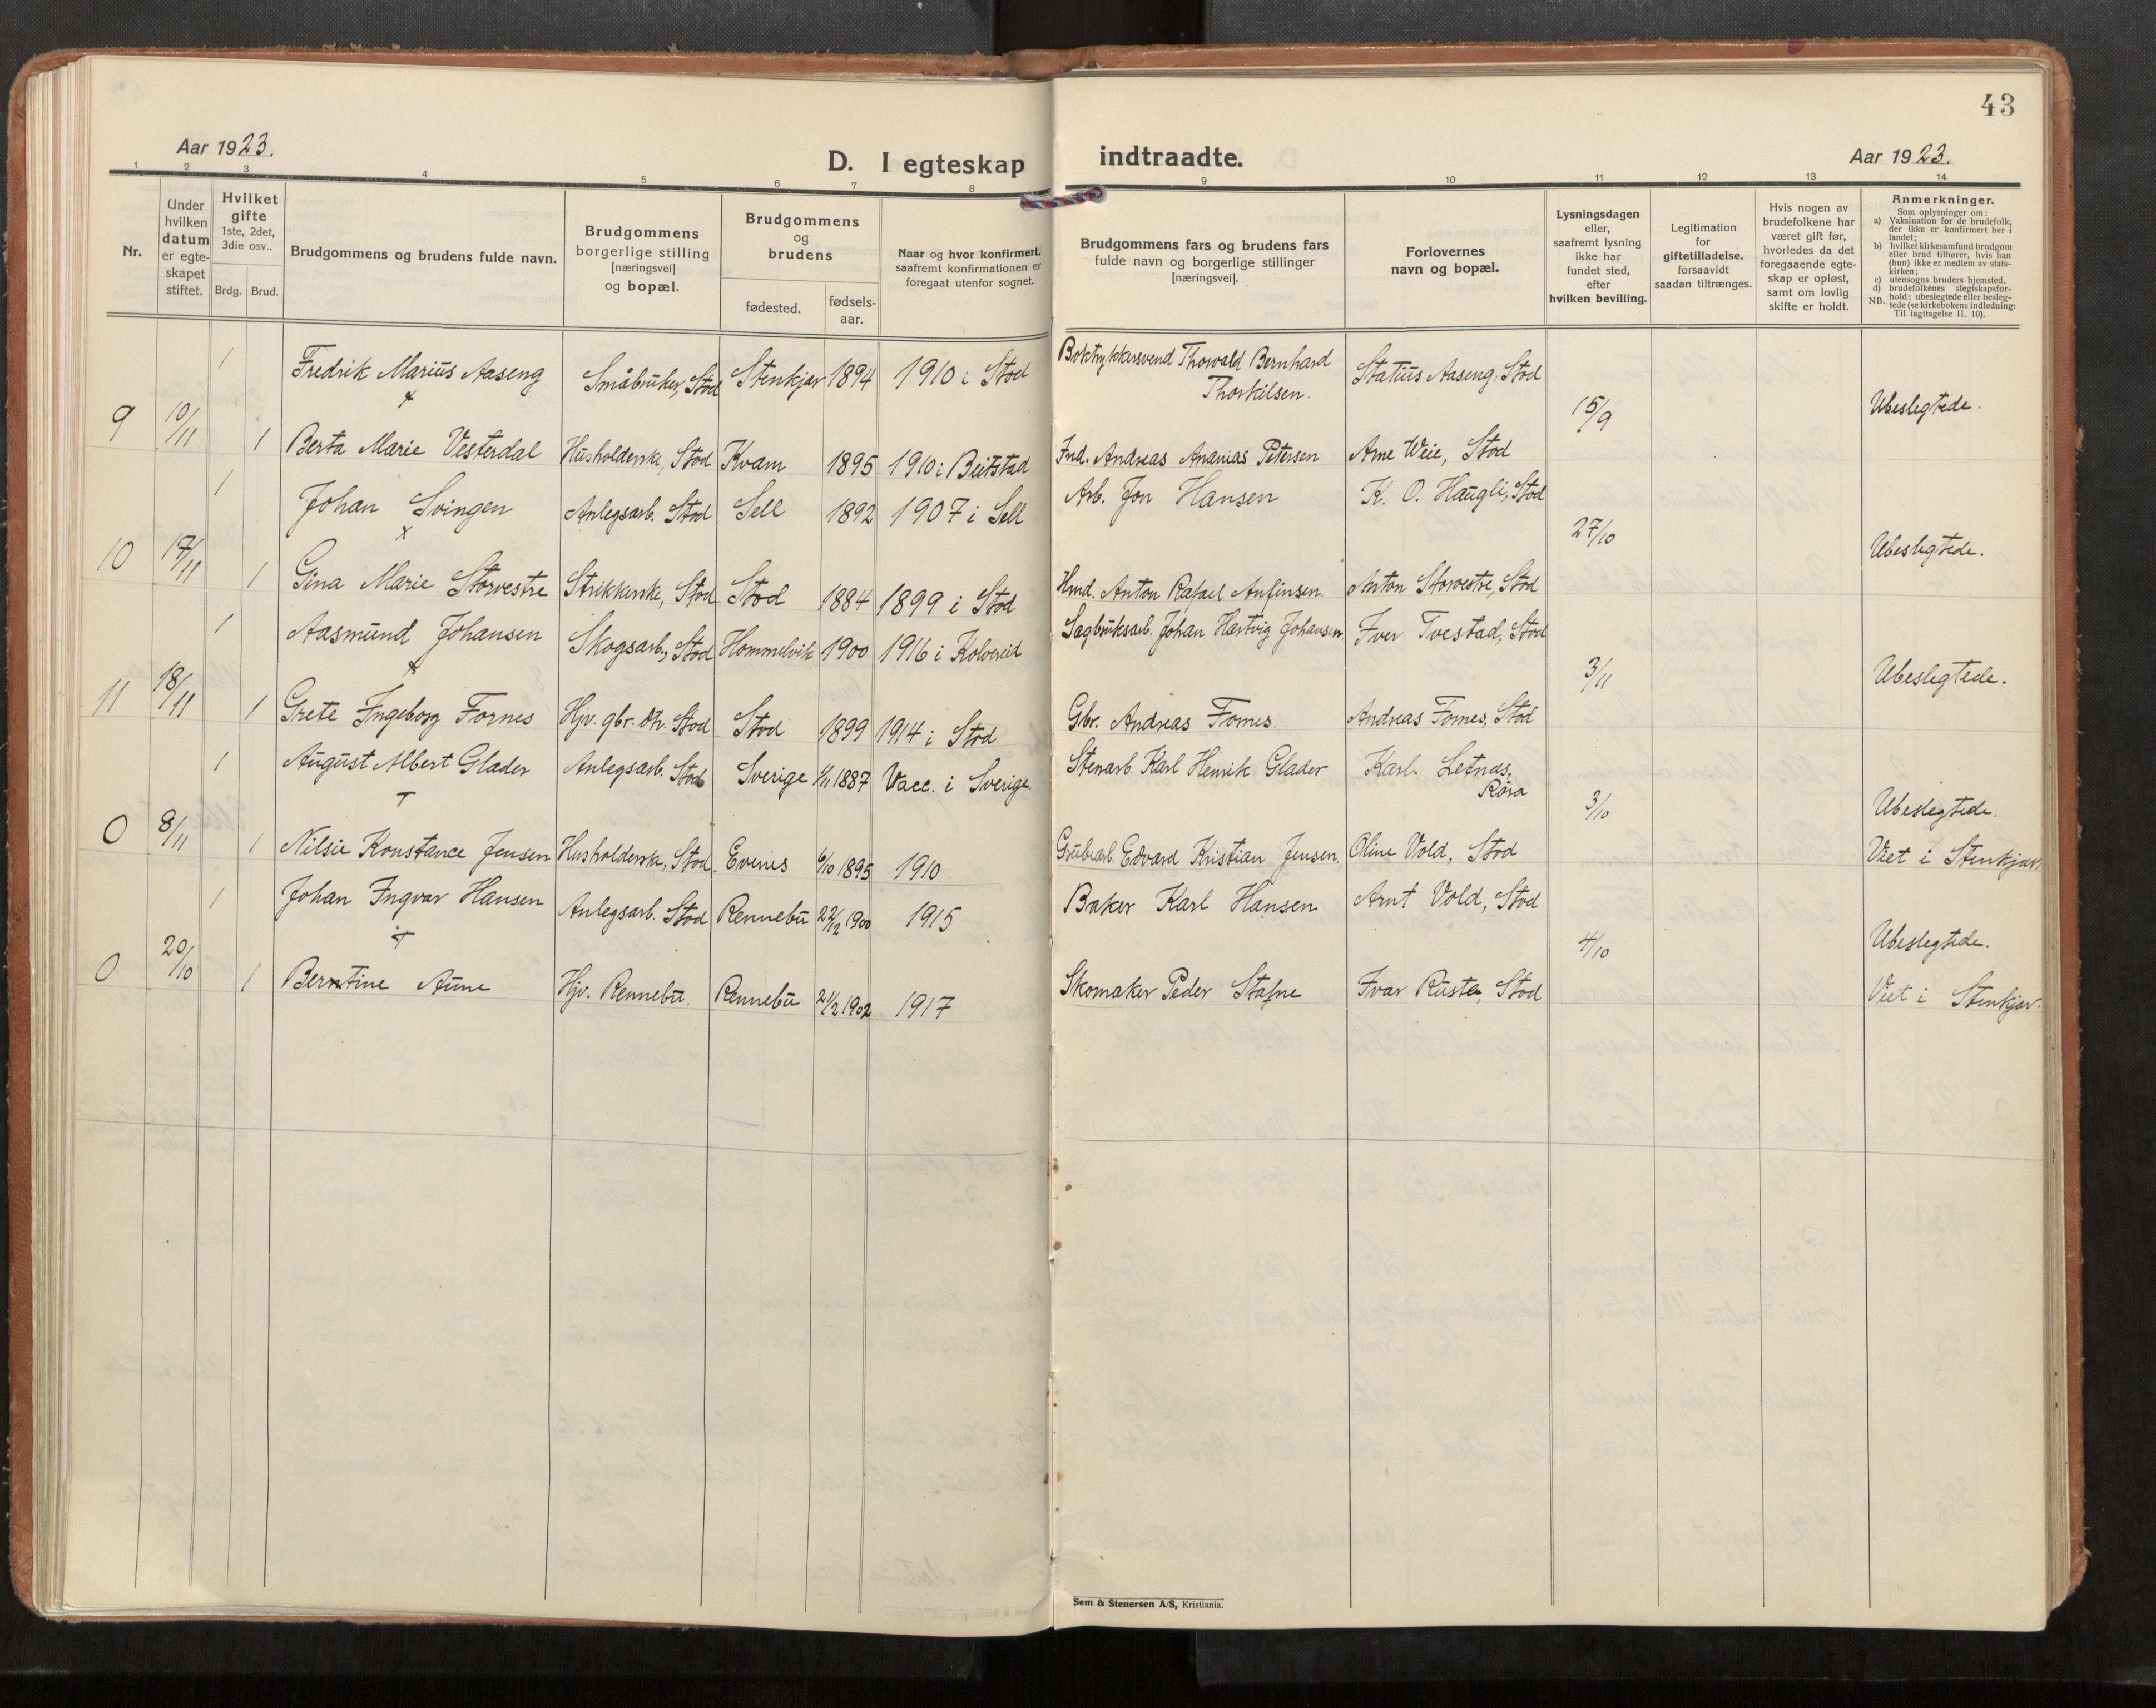 43
Aar 1923.
D. I egteskap indtraadte.
Aar 1923.
1 2 3 4 5 6 7 8 9 10 11 12 13 14
Nr.
Under hvilken datum er egte-skapet stiftet.
Hvilket gifte 1ste, 2det, 3die osv..
Brdg. Brud.
Brudgommens og brudens fulde navn.
Brudgommens borgerlige stilling [næringsvei] og bopæl.
Brudgommens og brudens
fødested.
fødsels-aar.
Naar og hvor konfirmert, saafremt konfirmationen er foregaat utenfor sognet.
Brudgommens fars og brudens fars fulde navn og borgerlige stillinger [næringsvei].
Forlovernes navn og bopæl.
Lysningsdagen eller, saafremt lysning ikke har fundet sted, efter hvilken bevilling.
Legitimation for giftetilladelse, forsaavidt saadan tiltrænges.
Hvis nogen av brudefolkene har været gift før, hvorledes da det foregaaende egte-skap er opløst, samt om lovlig skifte er holdt.
Anmerkninger.
Som oplysninger om:
a) Vaksination for de brudefolk, der ikke er konfirmert her i landet;
b) hvilket kirkesamfund brudgom eller brud tilhører, hvis han (hun) ikke er medlem av stats-kirken;
c) utensogns bruders hjemsted.
d) brudefolkenes slegtskapsfor-hold: ubeslegtede eller besleg-tede (se kirkebokens indledning:
NB. Til iagttagelse II. 10).
1 Fredrik Marius Aaseng Småbruker, Stod Stenkjær 1894 1910 i Stod Boktrykkersvend Thorvald Bernhard Thorkilsen. Statius Aaseng, Stod
9 10/11 x 15/9 Ubeslegtede.
1 Berta Marie Vesterdal Husholderske, Stod Kvam 1895 1910 i Beitstad Ind. Andreas Ananias Petersen Arne Weie, Stod
1 Johan Svingen Anlegsarb. Stod Sell 1892 1907 i Sell Arb. Jon Hansen K. O. Haugli, Stod
10 17/11 x 27/10 Ubeslegtede.
1 Gina Marie Storvestre Strikkerske, Stod Stod 1884 1899 i Stod Hmd. Anton Rafael Anfinsen. Anton Storvestre, Stod
1 Aasmund Johansen Skogsarb., Stod Hommelvik 1900 1916 i Kolvereid Sagbruksarb. Johan Hartvig Johansen Iver Tvestad, Stod
11 18/11 x 3/11 Ubeslegtede.
1 Grete Ingeborg Fornes Hjv. gbr. dh. Stod Stod 1899 1914 i Stod Gbr. Andreas Fornes. Andreas Fornes, Stod
1 August Albert Glader Anlegsarb. Stod Sverige 1/11 1887 Vacc. i Sverige. Stenarb. Karl Henrik Glader Karl Letnes, Røra
0 8/11 T 3/10 Ubeslegtede.
1 Nilsie Konstance Jensen Husholderske, Stod Evenes 6/10 1895 1910 Grubearb. Edvard Kristian Jensen. Oline Vold, Stod Viet i Stenkjær.
1 Johan Ingvar Hansen Anlegsarb. Stod Rennebu 22/12 1900 1915 Baker Karl Hansen Arnt Vold, Stod
0 20/10 T 4/10 Ubeslegtede.
1 Berntine Aune Hjv. Rennebu. Rennebu 21/2 1902 1917 Skomaker Peder Stafne Ivar Ruste, Stod Viet i Stenkjær.
Sem & Stenersen A/S, Kristiania.